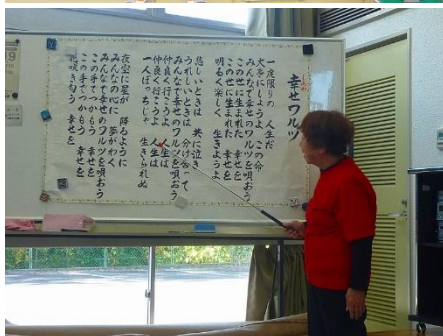 幸せワルツ
一度限りの 人生だ
大事にしようよ この命
みんなで幸せのワルツを唄おう
この世に生まれた 幸せを
この世に生まれた 幸せを
明るく楽しく 生きようよ
悲しいときは 共に泣き
うれしいときは 分け合って
みんなで幸せのワルツを唄おう
仲良く行こうよ 人生は
仲良く行こうよ 人生は
一人ぼっちじゃ 生きられぬ
夜空に星が 降るように
みんなの心に 夢がわく
みんなで幸せのワルツを唄おう
この手でつかもう 幸せを
この手でつかもう 幸せを
花咲き匂う 幸せを